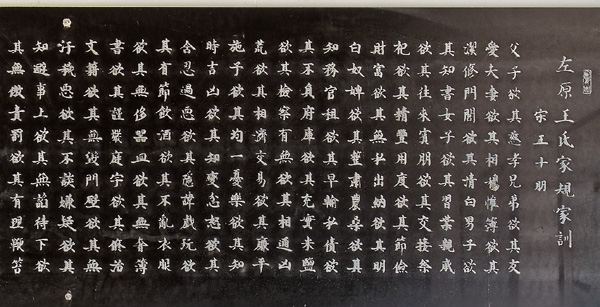 左原王氏家規家訓
宋 王十朋
父子欲其慈孝兄弟欲其友
愛夫妻欲其相帷簿欲其
潔修門閭欲其清白男子欲
其知書女子欲其習業親戚
欲其往來賓朋欲其交接祭
祀欲其精豐用度欲其節儉
財富欲其無私出納欲其明
白奴婢欲其整肅農桑欲其
知務官租欲其早輸私債欲
其不負府庫欲其充實米鹽
欲其檢察有無欲其相通凶
荒欲其相濟交易欲其廉平
施予欲其均一憂樂欲其知
時吉凶欲其知變忿怒欲其
含忍過惡欲其隱諱戲玩欲
其有節飲酒欲其不亂衣服
欲其無侈器皿欲其無奢簿
書欲其謹嚴庭宇欲其修治
文籍欲其無毀門壁欲其無
汙欲其不談嫌疑欲其
知避事上欲其無諂待下欲
其無傲責罰欲其有理鞭笞